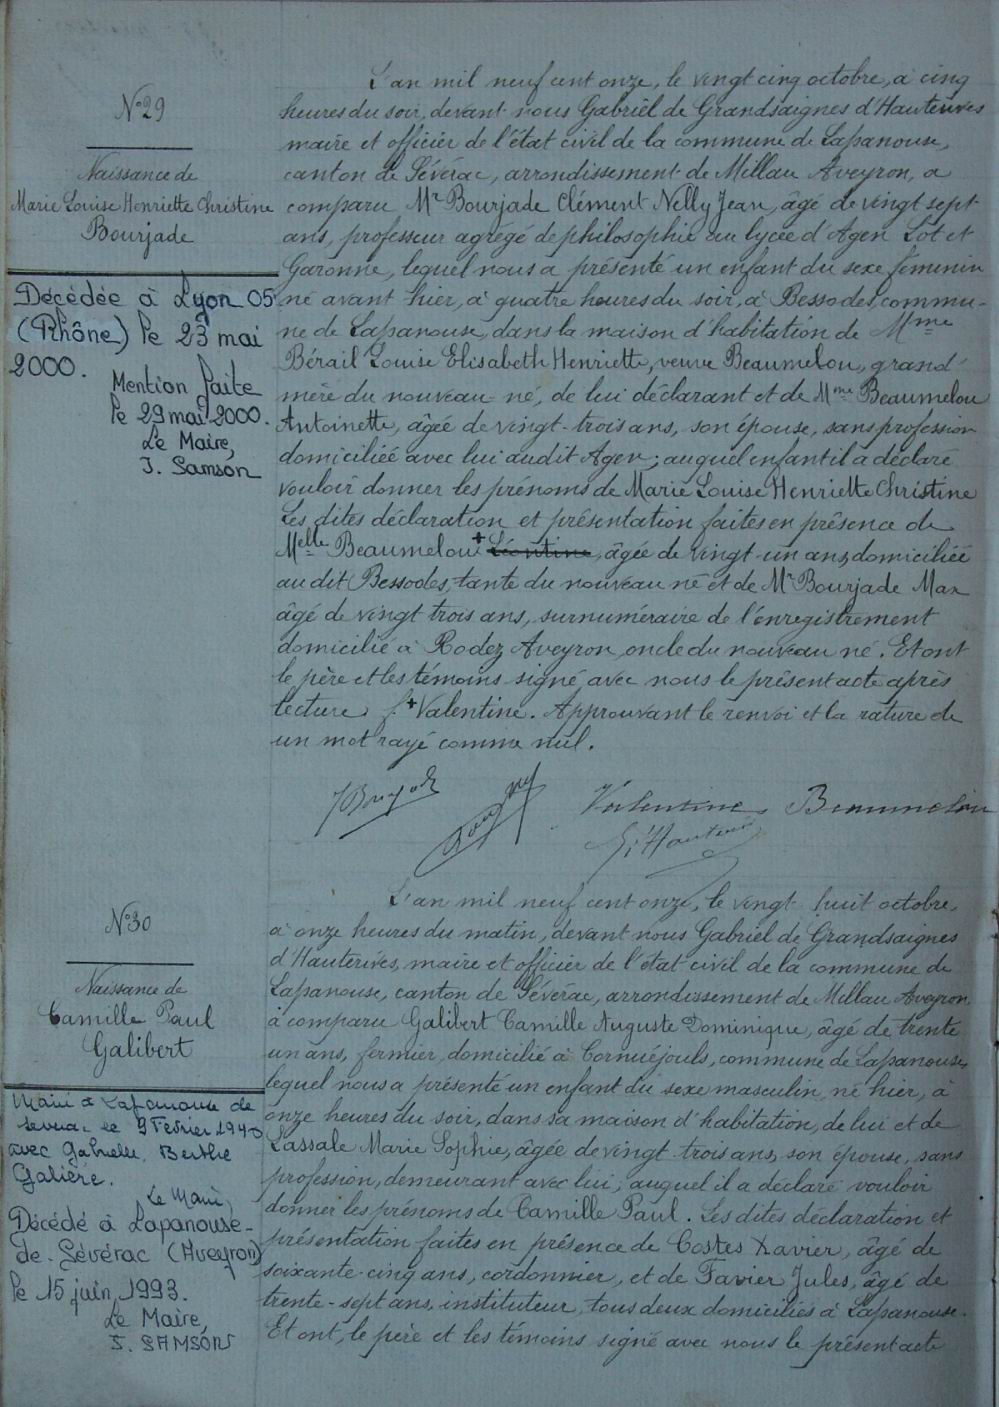 N°29
Naissance de
Marie Louise Henriette Christine
Bourjade
Décédée à Lyon 05
(Rhône) le 23 mai
2000.
Mention faite
le 29 mai 2000.
Le Maire,
J. Samson
L'an mil neuf cent onze, le vingt cinq octobre, à cinq
heures du soir, devant nous Gabriel de Grandsaignes d'Hauterives
maire et officier de l'état civil de la commune de Lapanouse,
canton de Sévérac, arrondissement de Millau Aveyron, a
comparu Mr Bourjade Clément Nelly Jean, âgé de vingt sept
ans, professeur agrégé de philosophie au lycée d'Agen Lot et
Garonne, lequel nous a présenté un enfant du sexe féminin
né avant hier, à quatre heures du soir, à Bessodes, commu-
ne de Lapanouse, dans la maison d'habitation de Mme
Bérail Louise Elisabeth Henriette, veuve Beaumelou, grand'
mère du nouveau né, de lui déclarant et de Mme Beaumelou
Antoinette, âgée de vingt-trois ans, son épouse, sans profession
domiciliée avec lui audit Agen; auquel enfant il a déclaré
vouloir donner les prénoms de Marie Louise Henriette Christine
Les dites déclaration et présentation faites en présence de
Melle Beaumelou + Léontine, âgée de vingt-un ans, domiciliée
au dit Bessodes, tante du nouveau né et de Mr Bourjade Max
âgé de vingt trois ans, surnuméraire de l'enregistrement
domicilié à Rodez Aveyron, oncle du nouveau né. Et ont
le père et les témoins signé avec nous le présent acte après
lecture + Valentine. Approuvant le renvoi et la rature de
un mot rayé comme nul.
JBourjade
Valentine Beaumelou
G. d'Hauterives
N°30
Naissance de
Camille Paul
Galibert
Marié à Lapanouse de
Séverac le 9 Février 1940
avec Gabrielle, Berthe
Galière.
Le Maire,
Décédé à Lapanouse-
de-Sévérac (Aveyron)
le 15 juin 1993.
Le Maire,
J. SAMSON
L'an mil neuf cent onze, le vingt huit octobre,
à onze heures du matin, devant nous Gabriel de Grandsaignes
d'Hauterives, maire et officier de l'état civil de la commune de
Lapanouse, canton de Sévérac, arrondissement de Millau Aveyron,
a comparu Galibert Camille Auguste Dominique, âgé de trente
un ans, fermier, domicilié à Cornuéjouls, commune de Lapanouse,
lequel nous a présenté un enfant du sexe masculin, né hier, à
onze heures du soir, dans sa maison d'habitation, de lui et de
Lassale Marie Sophie, âgée de vingt trois ans, son épouse, sans
profession, demeurant avec lui; auquel il a déclaré vouloir
donner les prénoms de Camille Paul. Les dites déclaration et
présentation faites en présence de Costes Xavier, âgé de
soixante-cinq ans, cordonnier, et de Favier Jules, âgé de
trente-sept ans, instituteur, tous deux domiciliés à Lapanouse.
Et ont, le père et les témoins signé avec nous le présent acte